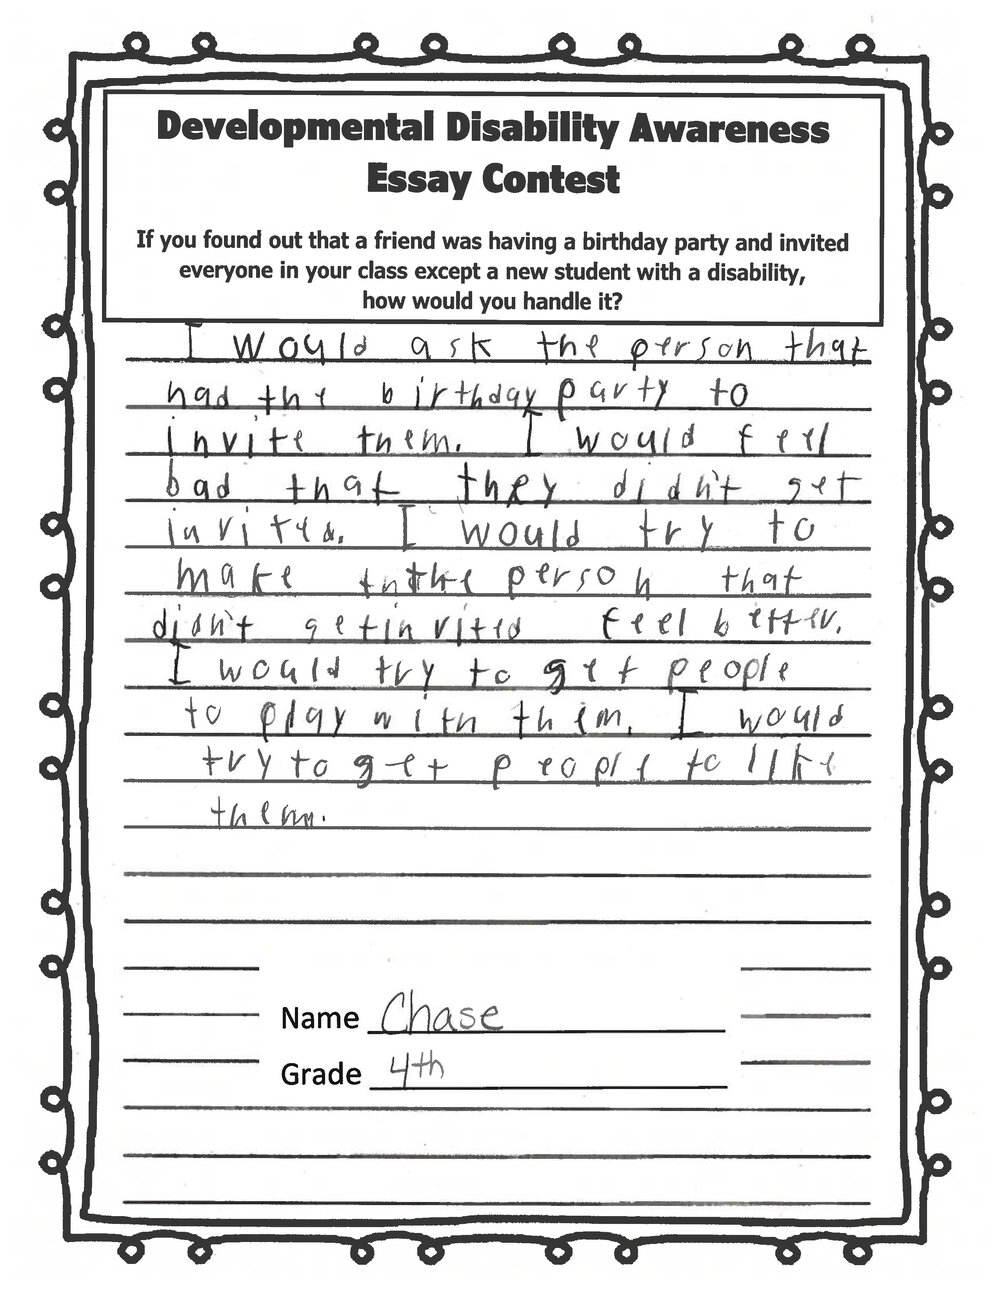 Developmental Disability Awareness
Essay Contest
If you found out that a friend was having a birthday party and invited
everyone in your class except a new student with a disability,
how would you handle it?
I would ask the person that
had the birthday party to
invite them. I would feel
bad that they didn't get
invited. I would try to
make the person that
didn't get invited feel better.
I would try to get people
to play with them. I would
try to get people to like
them.
Name Chase
Grade 4th